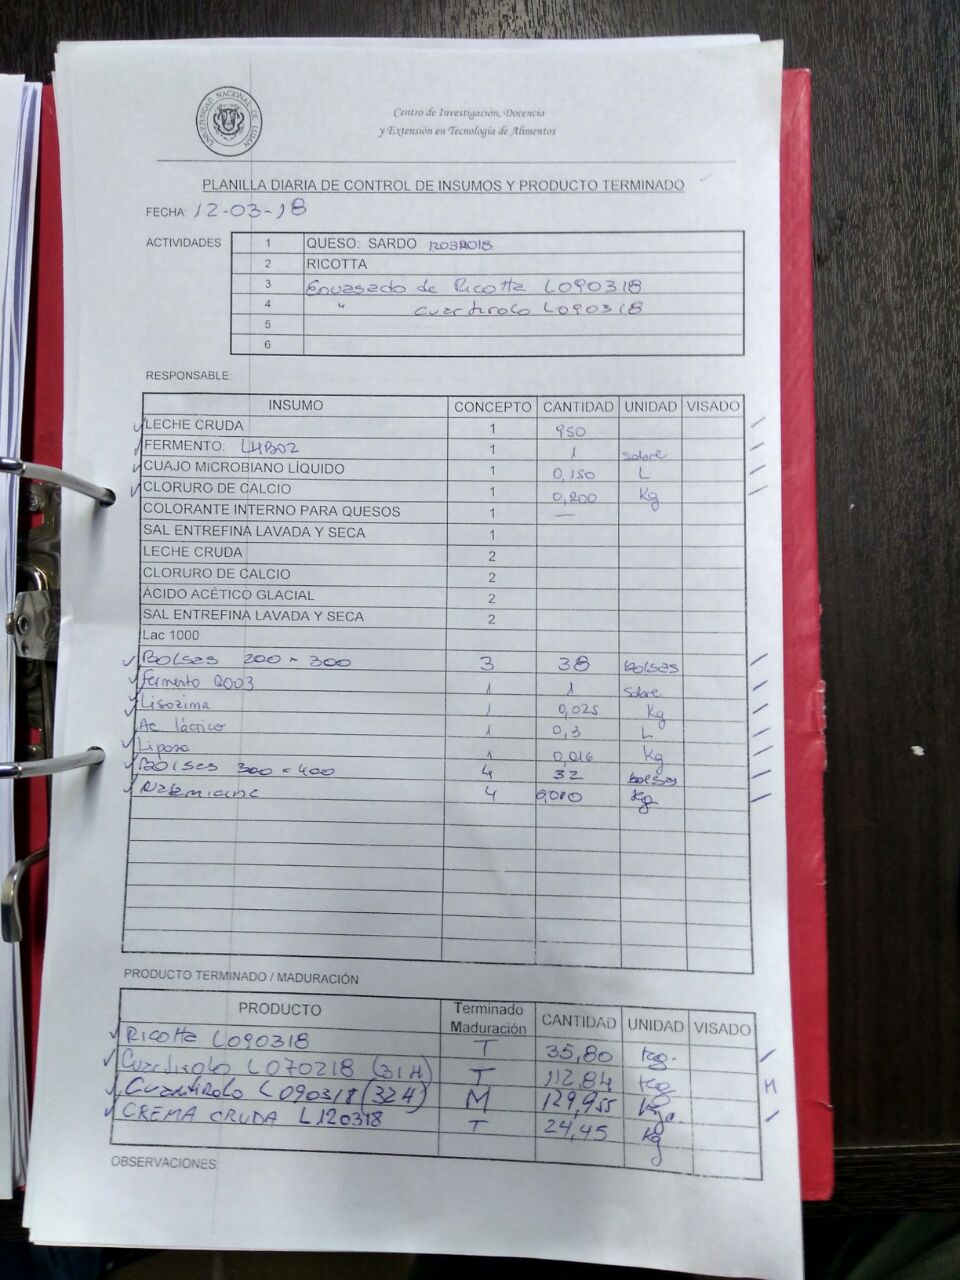 UNIVERSIDAD NACIONAL DE LUJAN
Centro de Investigación, Docencia
y Extensión en Tecnología de Alimentos
PLANILLA DIARIA DE CONTROL DE INSUMOS Y PRODUCTO TERMINADO
FECHA: 12-03-18
ACTIVIDADES 1 QUESO: SARDO
2 RICOTTA
3 Envasado de Ricotta L090318
4 " Cuartirolo L090318
5
6
RESPONSABLE:
INSUMO CONCEPTO CANTIDAD UNIDAD VISADO
LECHE CRUDA 1 950
FERMENTO: LHB02 1 1 sobre
CUAJO MICROBIANO LÍQUIDO 1 0,150 L
CLORURO DE CALCIO 1 0,200 Kg
COLORANTE INTERNO PARA QUESOS 1 —
SAL ENTREFINA LAVADA Y SECA 1
LECHE CRUDA 2
CLORURO DE CALCIO 2
ÁCIDO ACÉTICO GLACIAL 2
SAL ENTREFINA LAVADA Y SECA 2
Lac 1000
Bolsas 200 x 300 3 38 bolsas
fermento 1 1 sobre
Lisozima 1 0,025 Kg
Ac láctico 1 0,3 L
Lipasa 1 0,016 Kg
Bolsas 300 x 400 4 32 bolsas
Natamicina 4 0,010 Kg
PRODUCTO TERMINADO / MADURACIÓN
PRODUCTO Terminado Maduración CANTIDAD UNIDAD VISADO
Ricotta L090318 T 35,80 Kg.
Cuartirolo L070218 (31H) T 112,84 Kg
Cuartirolo L090318 (32H) M 129,955 Kg.
CREMA CRUDA L120318 T 24,45 Kg
M
OBSERVACIONES: